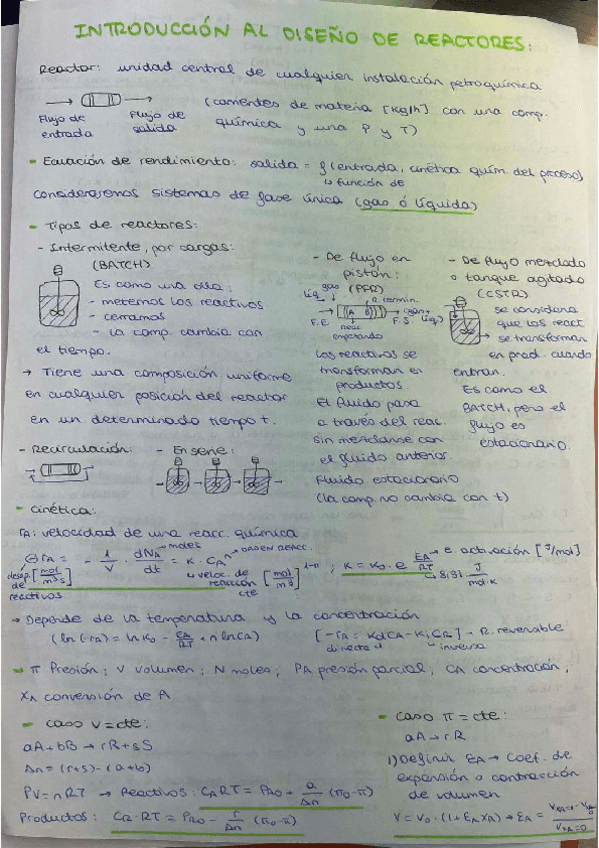 INTRODUCCIÓN AL DISEÑO DE REACTORES:
Reactor: unidad central de cualquier instalación petroquímica
Flujo de entrada
Flujo de salida
(corrientes de materia [kg/h] con una comp. química y una P y T)
- Ecuación de rendimiento: salida = f(entrada, cinética quím. del proceso)
↳ función de
Consideraremos sistemas de fase única (gas ó líquida)
- Tipos de reactores:
- Intermitente, por cargas:
(BATCH)
Es como una olla:
- metemos los reactivos
- cerramos
- la comp. cambia con
el tiempo.
→ Tiene una composición uniforme
en cualquier posición del reactor
en un determinado tiempo t.
- De flujo en
pistón:
(PFR)
gas
líq.
F.E.
F.S.
Los reactivos se
transforman en
productos
El fluido pasa
a través del reac.
sin mezclarse con
el fluido anterior.
Fluido estacionario
(la comp. no cambia con t)
- De flujo mezclado
o tanque agitado
(CSTR)
se considera
que los react.
se transforman
en prod. cuando
entran.
Es como el
BATCH, pero el
flujo es
estacionario.
- Recirculación:
- En serie:
- Cinética:
rA: velocidad de una reacc. química
⊖rA = - 1/V · dNA/dt = K · CA
→ moles
→ ORDEN REACC.
desap. de reactivos
[mol/m³s]
↳ veloc. de reacción cte
[mol/m³]^1-n ; K = K0 · e^-EA/RT
→ e activación [J/mol]
↳ 8,31 J/mol·K
→ Depende de la temperatura y la concentración
(ln(-rA) = ln K0 - EA/RT + n ln CA)
[-rA = KdCA - KiCR] → R. reversible
directa
inversa
- π Presión; V volumen; N moles; PA presión parcial; CA concentración;
XA conversión de A
- Caso V=cte:
aA + bB → rR + sS
Δn = (r+s) - (a+b)
PV = nRT → Reactivos: CA RT = PA0 + a/Δn (π0 - π)
Productos: CR · RT = PR0 - r/Δn (π0 - π)
- Caso π = cte:
aA → rR
1) Definir εA → Coef. de
expansión o contracción
de volumen
V = V0 · (1 + εA XA) → εA = (VXA=1 - VXA=0)/VXA=0